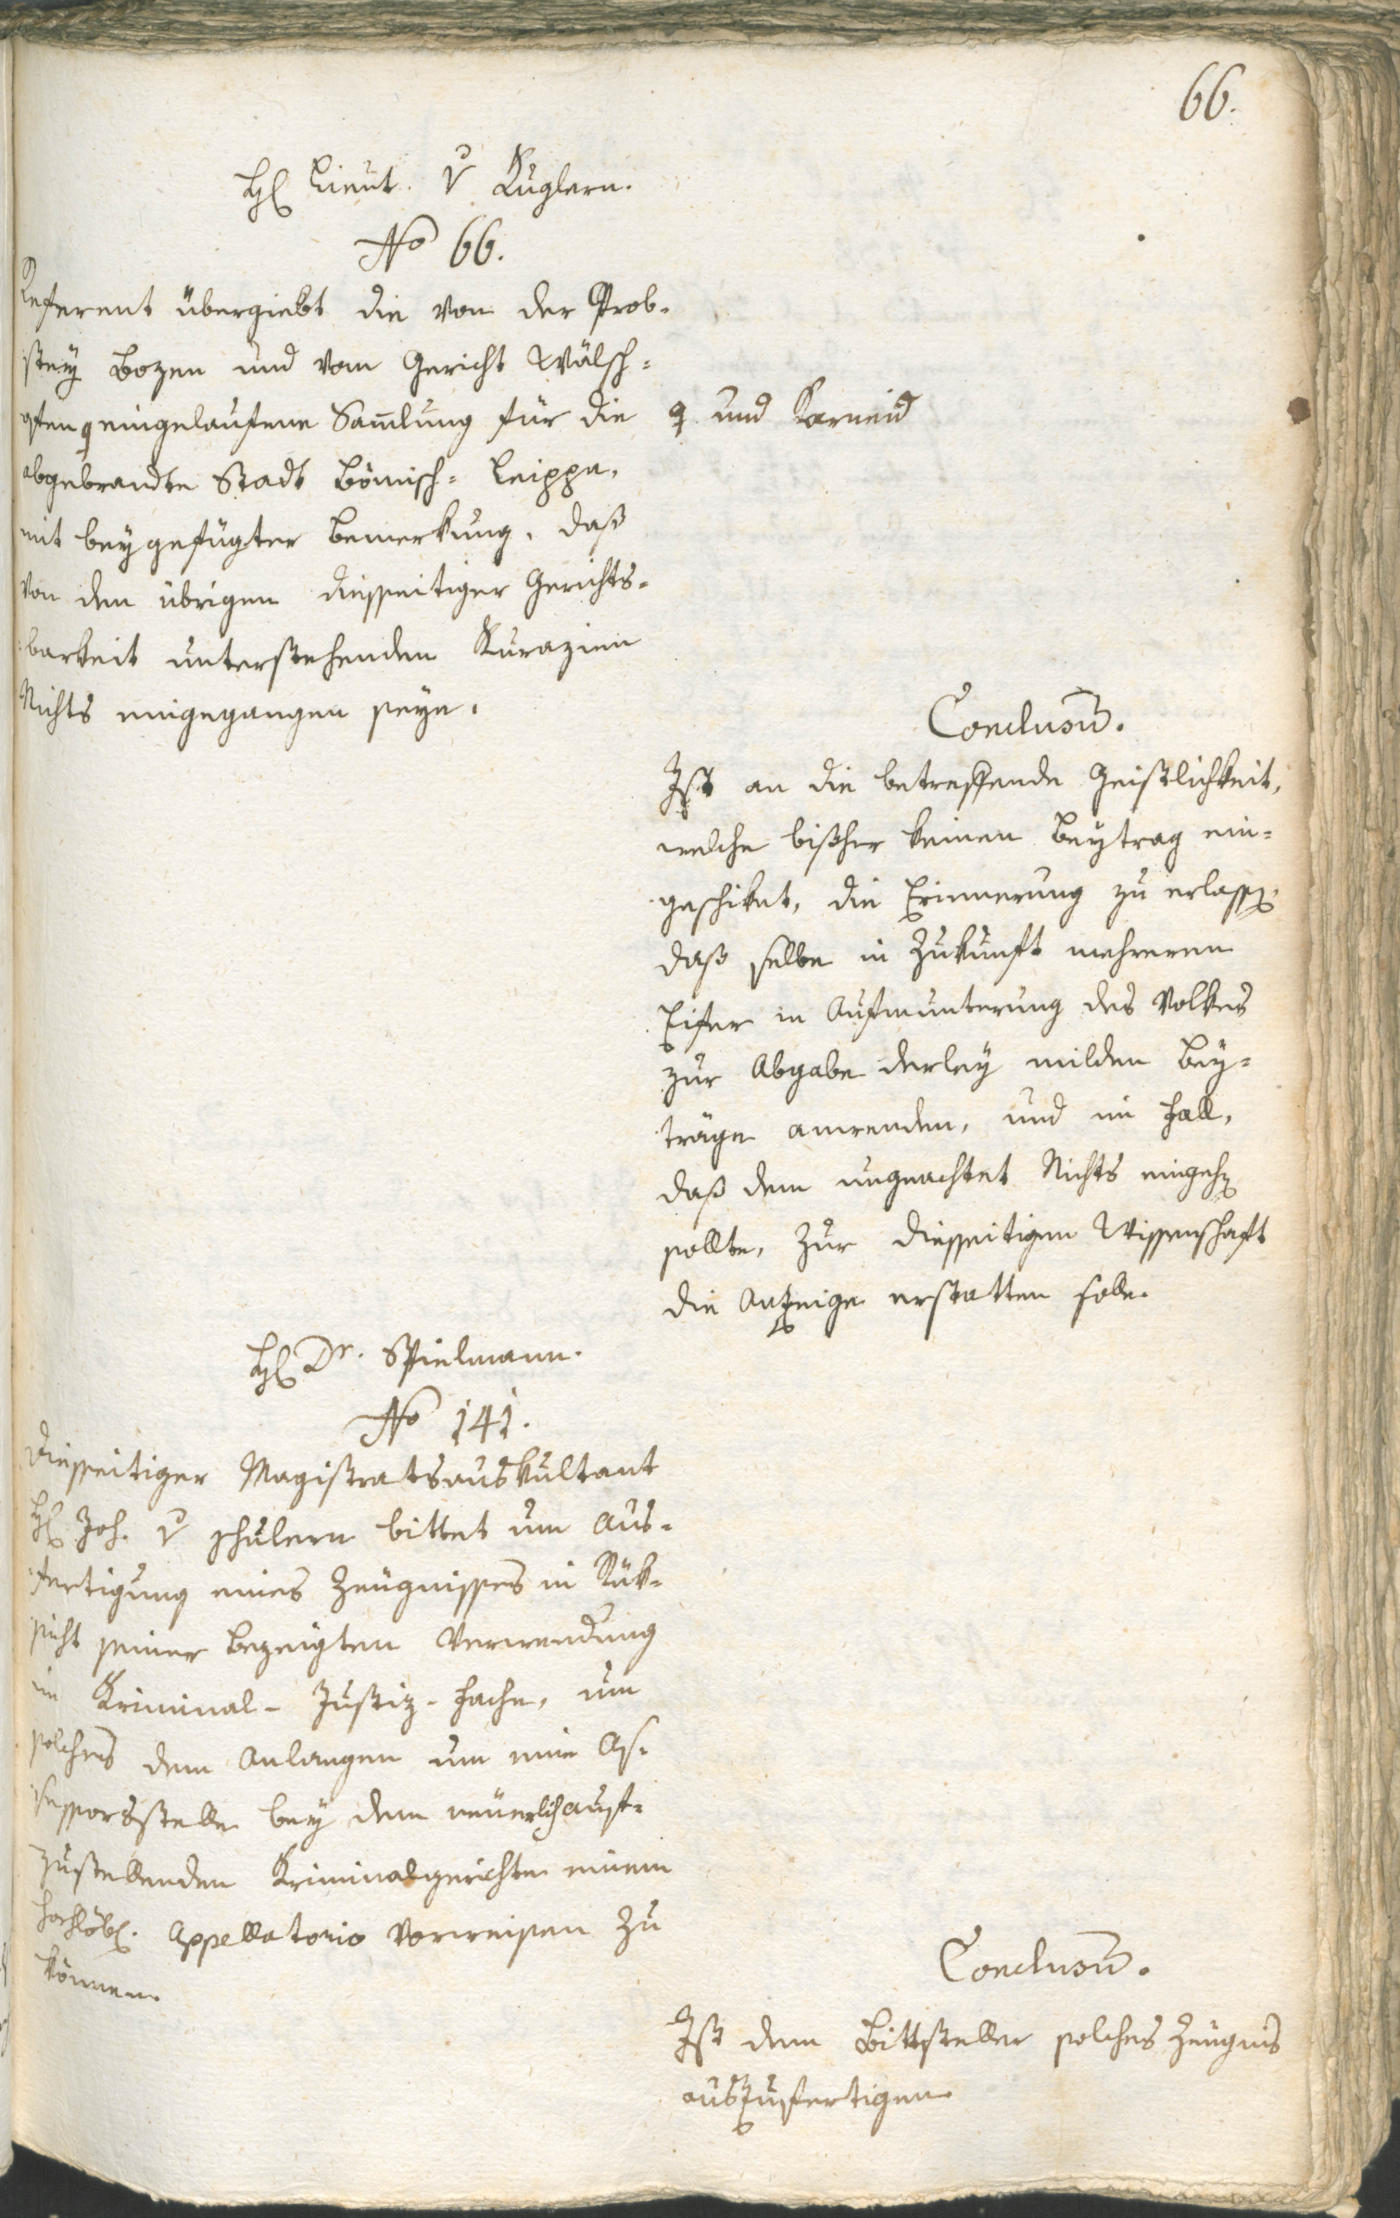 66.
H Lieut. v Kuglern.
No 66.
Referent übergiebt die von der Prob-
stey Bozen und vom Gericht Wälsch-
gften eingelaufene Sam̅lung für die
und Karneid
abgebrandte Stadt Bömisch-Leippa,
mit beygefügter Bemerkung, daß
von den übrigen diesseitiger Gerichts-
barkeit unterstehenden Kurazien
Nichts eingegangen seye.
Conclusum̅.
Ist an die betreffende Geistlichkeit,
welche bißher keinen Beytrag ein-
geschiket, die Erinnerung zu erlassen,
daß selbe in Zukunft mehreren
Eifer in Aufmunterung des Volkes
zur Abgabe derley milden Bey-
träge anwenden, und im Fall,
daß dem ungeachtet Nichts eingehen
sollte, zur diesseitigen Wissenschaft
die Anzeige erstatten solle.
H Dr. Spielmann.
No 141.
Diesseitiger Magistratsauskultant
H Joh. v Schulern bittet um Aus-
fertigung eines Zeugnisses in Rük-
sicht seiner bezeigten Verwendung
im Kriminal-Justiz-Fache, um
solches dem Anlangen um eine As-
sessorsstelle bey dem neuerlich auf-
zustellenden Kriminalgerichte einem
hochlöbl. Appellatorio vorweisen zu
können.
Conclusum̅.
Ist dem Bittsteller solches Zeugnis
auszufertigen.